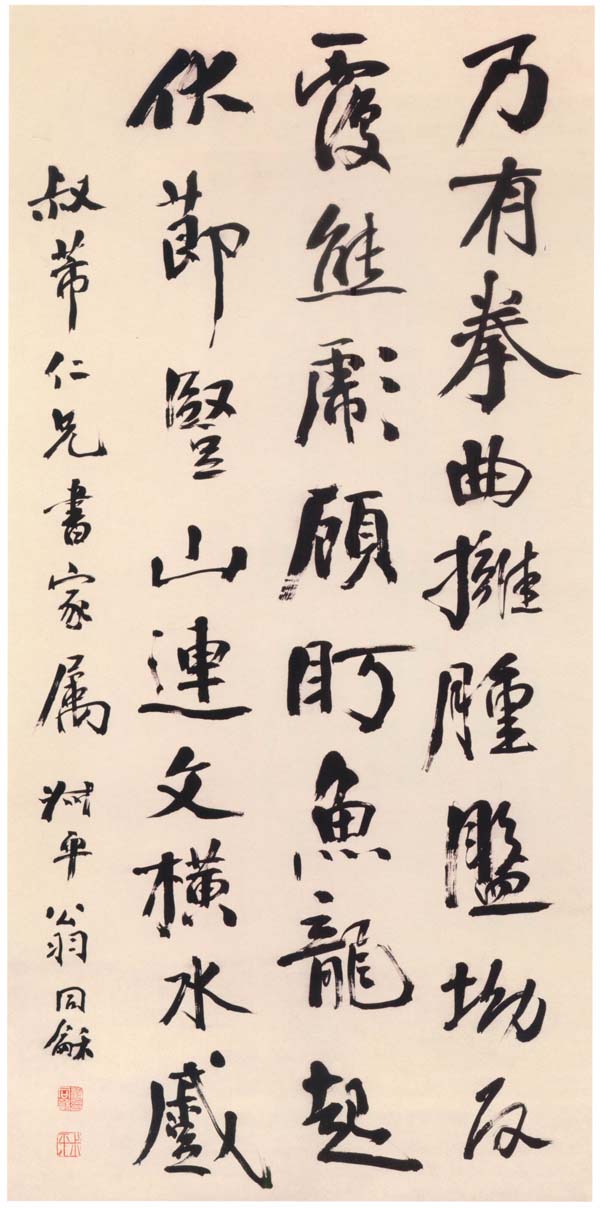 乃有拳曲擁腫盤坳反
覆熊彪顧盻魚龍起
伏節豎山連文橫水蹙
叔芾仁兄書家属 叔平翁同龢